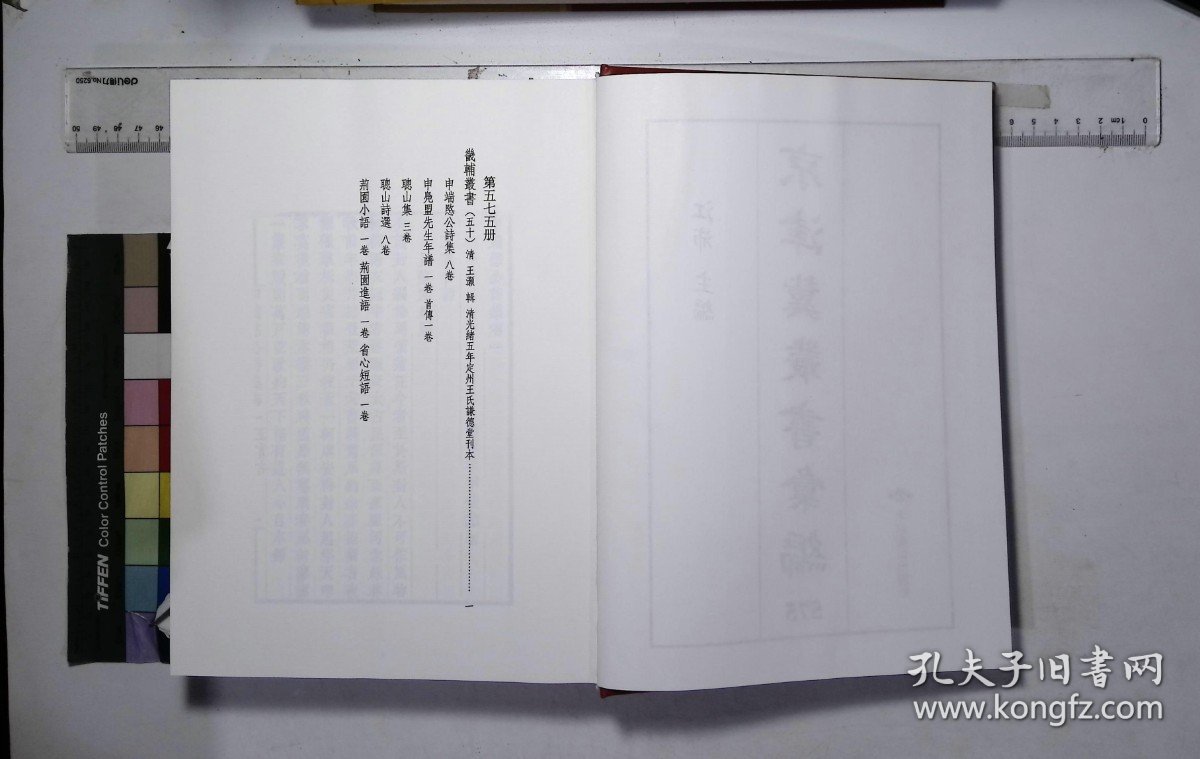 第五七五册
畿輔叢書（五十） 清 王灝 輯 清光緒五年定州王氏謙德堂刊本……………………………… 一
申端愍公詩集 八卷
申鳧盟先生年譜 一卷 首傳一卷
聰山集 三卷
聰山詩選 八卷
荊園小語 一卷 荊園進語 一卷 省心短語 一卷
江沛 主編
575
deli得力 No.6250
50 49 48 47 46
6 5 4 3 2 1cm 0
TIFFEN Color Control Patches
孔夫子旧书网
www.kongfz.com